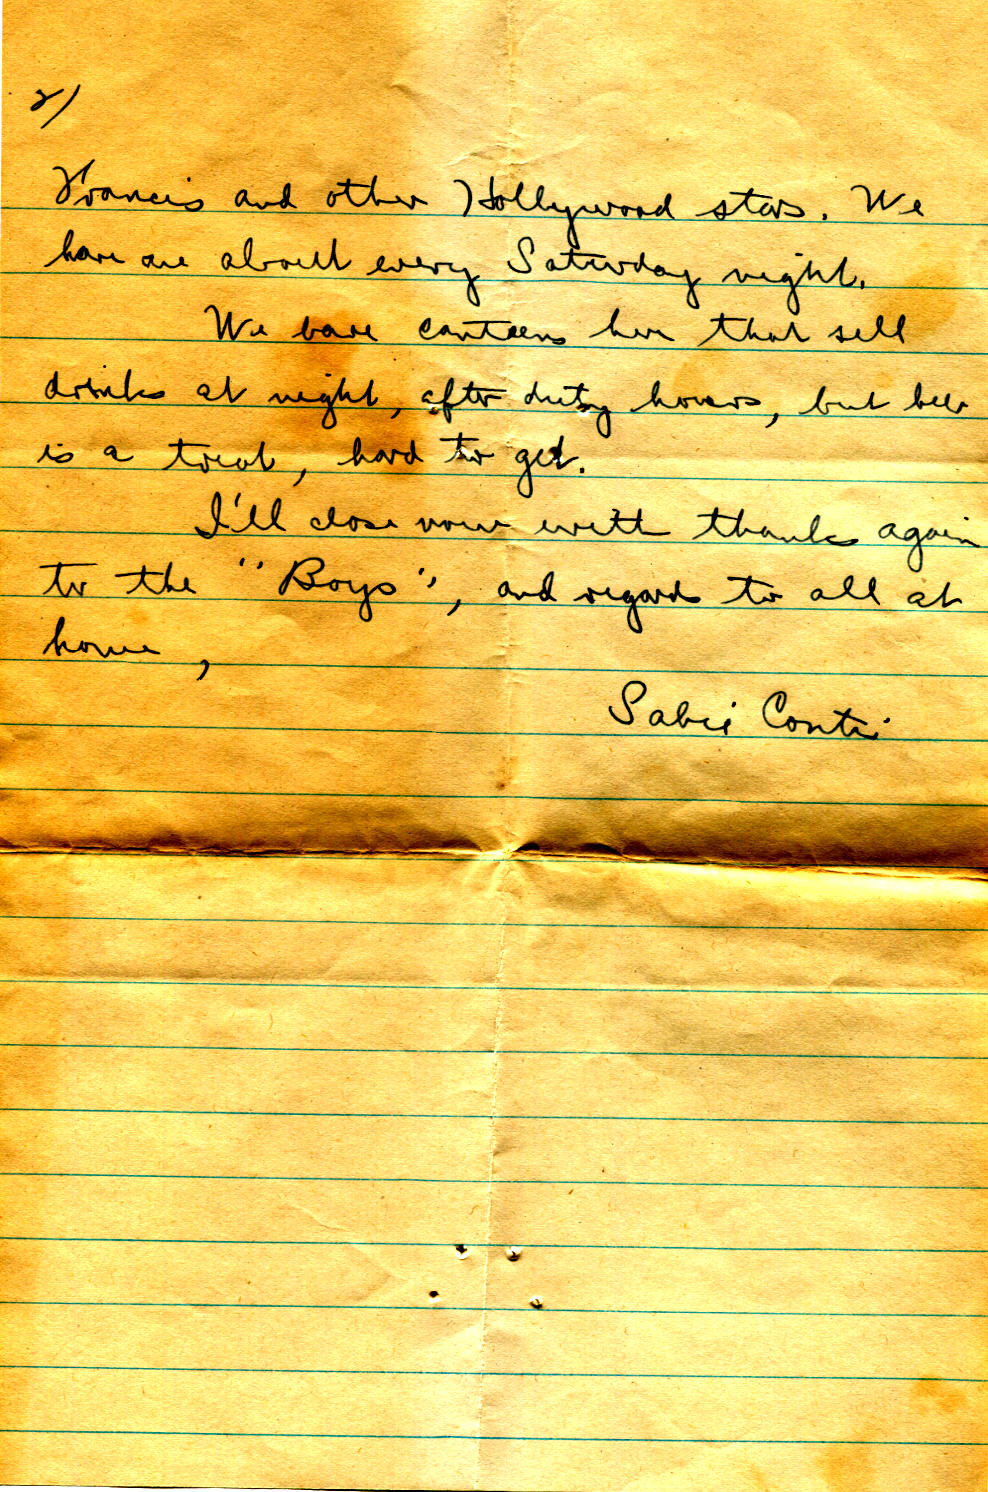 2/
Francis and other Hollywood stars. We
have one about every Saturday night.
We have canteens here that sell
drinks at night, after duty hours, but beer
is a treat, hard to get.
I'll close now with thanks again
to the "Boys", and regards to all at
home,
Sabci Conti